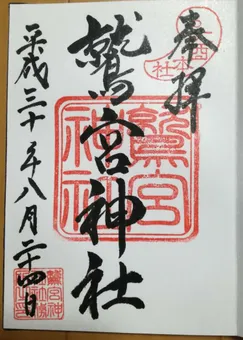 奉拝
鷲宮神社
平成三十年八月二十四日
鷲宮神社